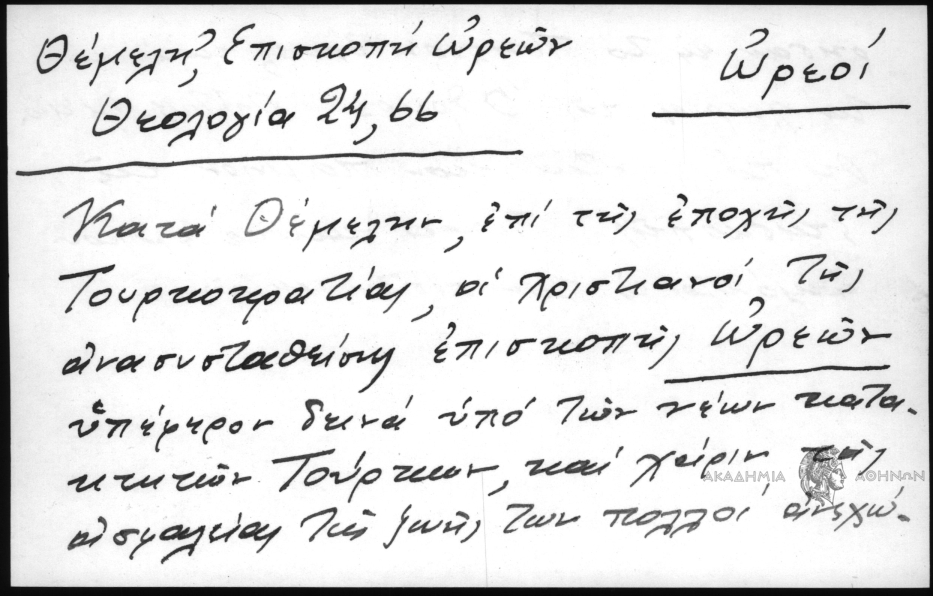 Θέμελη, Ἐπισκοπή Ὠρεῶν
Ὠρεοί
Θεολογία 24, 66
Κατά Θέμελην, ἐπί τῆς ἐποχῆς τῆς
Τουρκοκρατίας, οἱ χριστιανοί τῆς
ἀνασυσταθείσης ἐπισκοπῆς Ὠρεῶν
ὑπέφερον δεινά ὑπό τῶν νέων κατα-
κτητῶν Τούρκων, καί χάριν τῆς
ΑΚΑΔΗΜΙΑ ΑΘΗΝΩΝ
ἀσφαλείας τῆς ζωῆς των πολλοί ἀνεχώ-